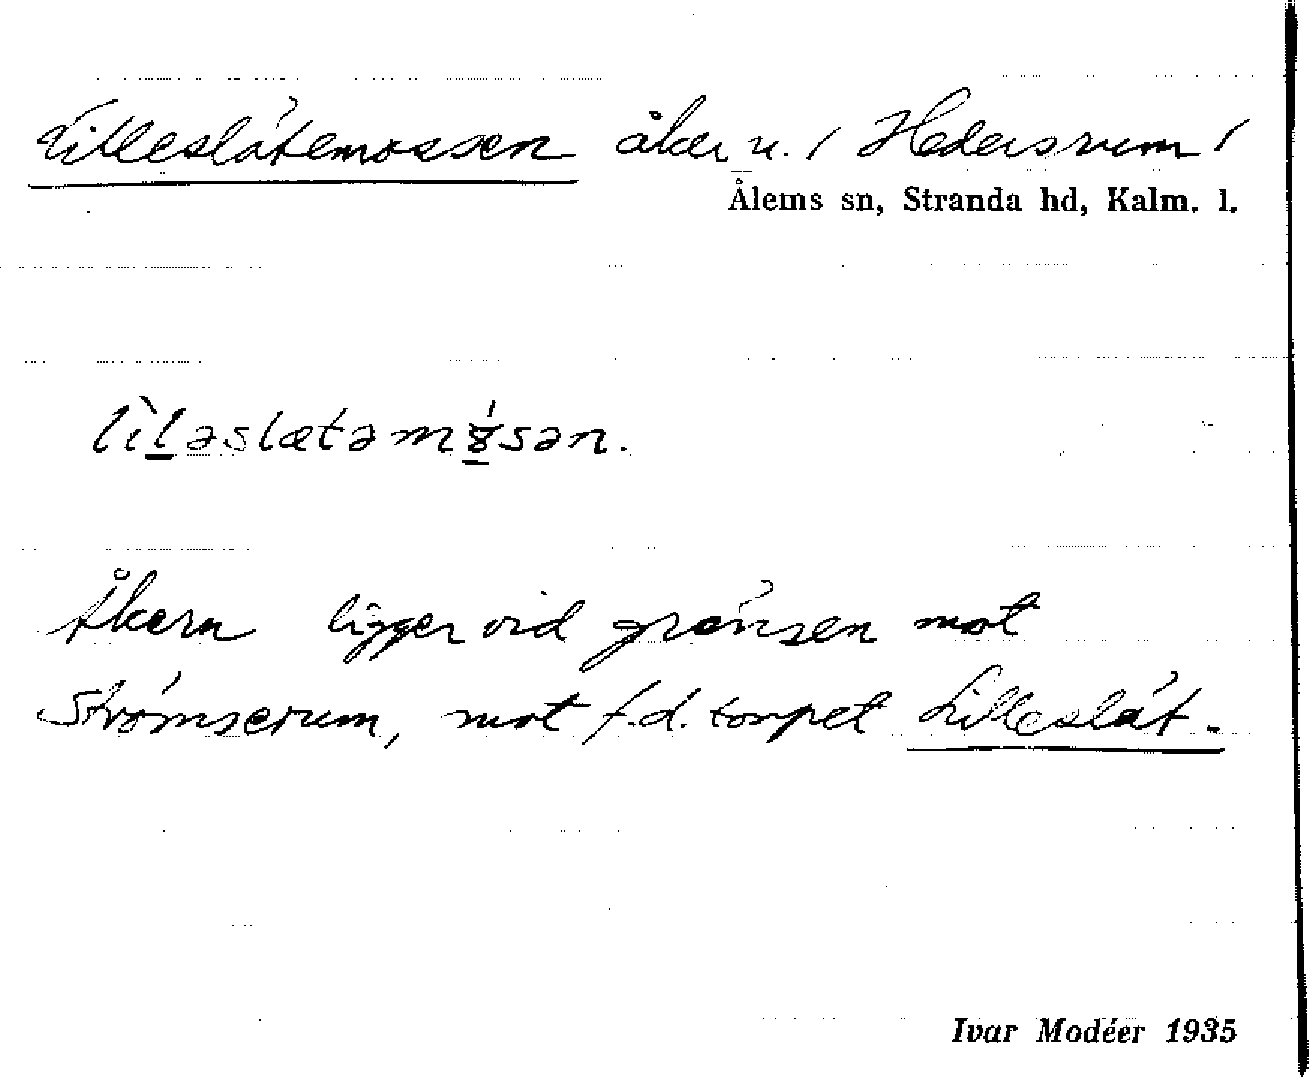 Lilleslätemossen åker u. / Hedersrum /
Ålems sn, Stranda hd, Kalm. l.
lìləslætəmósən.
Åkern ligger vid gränsen mot
Strömserum, mot f.d. torpet Lilleslät.
Ivar Modéer 1935